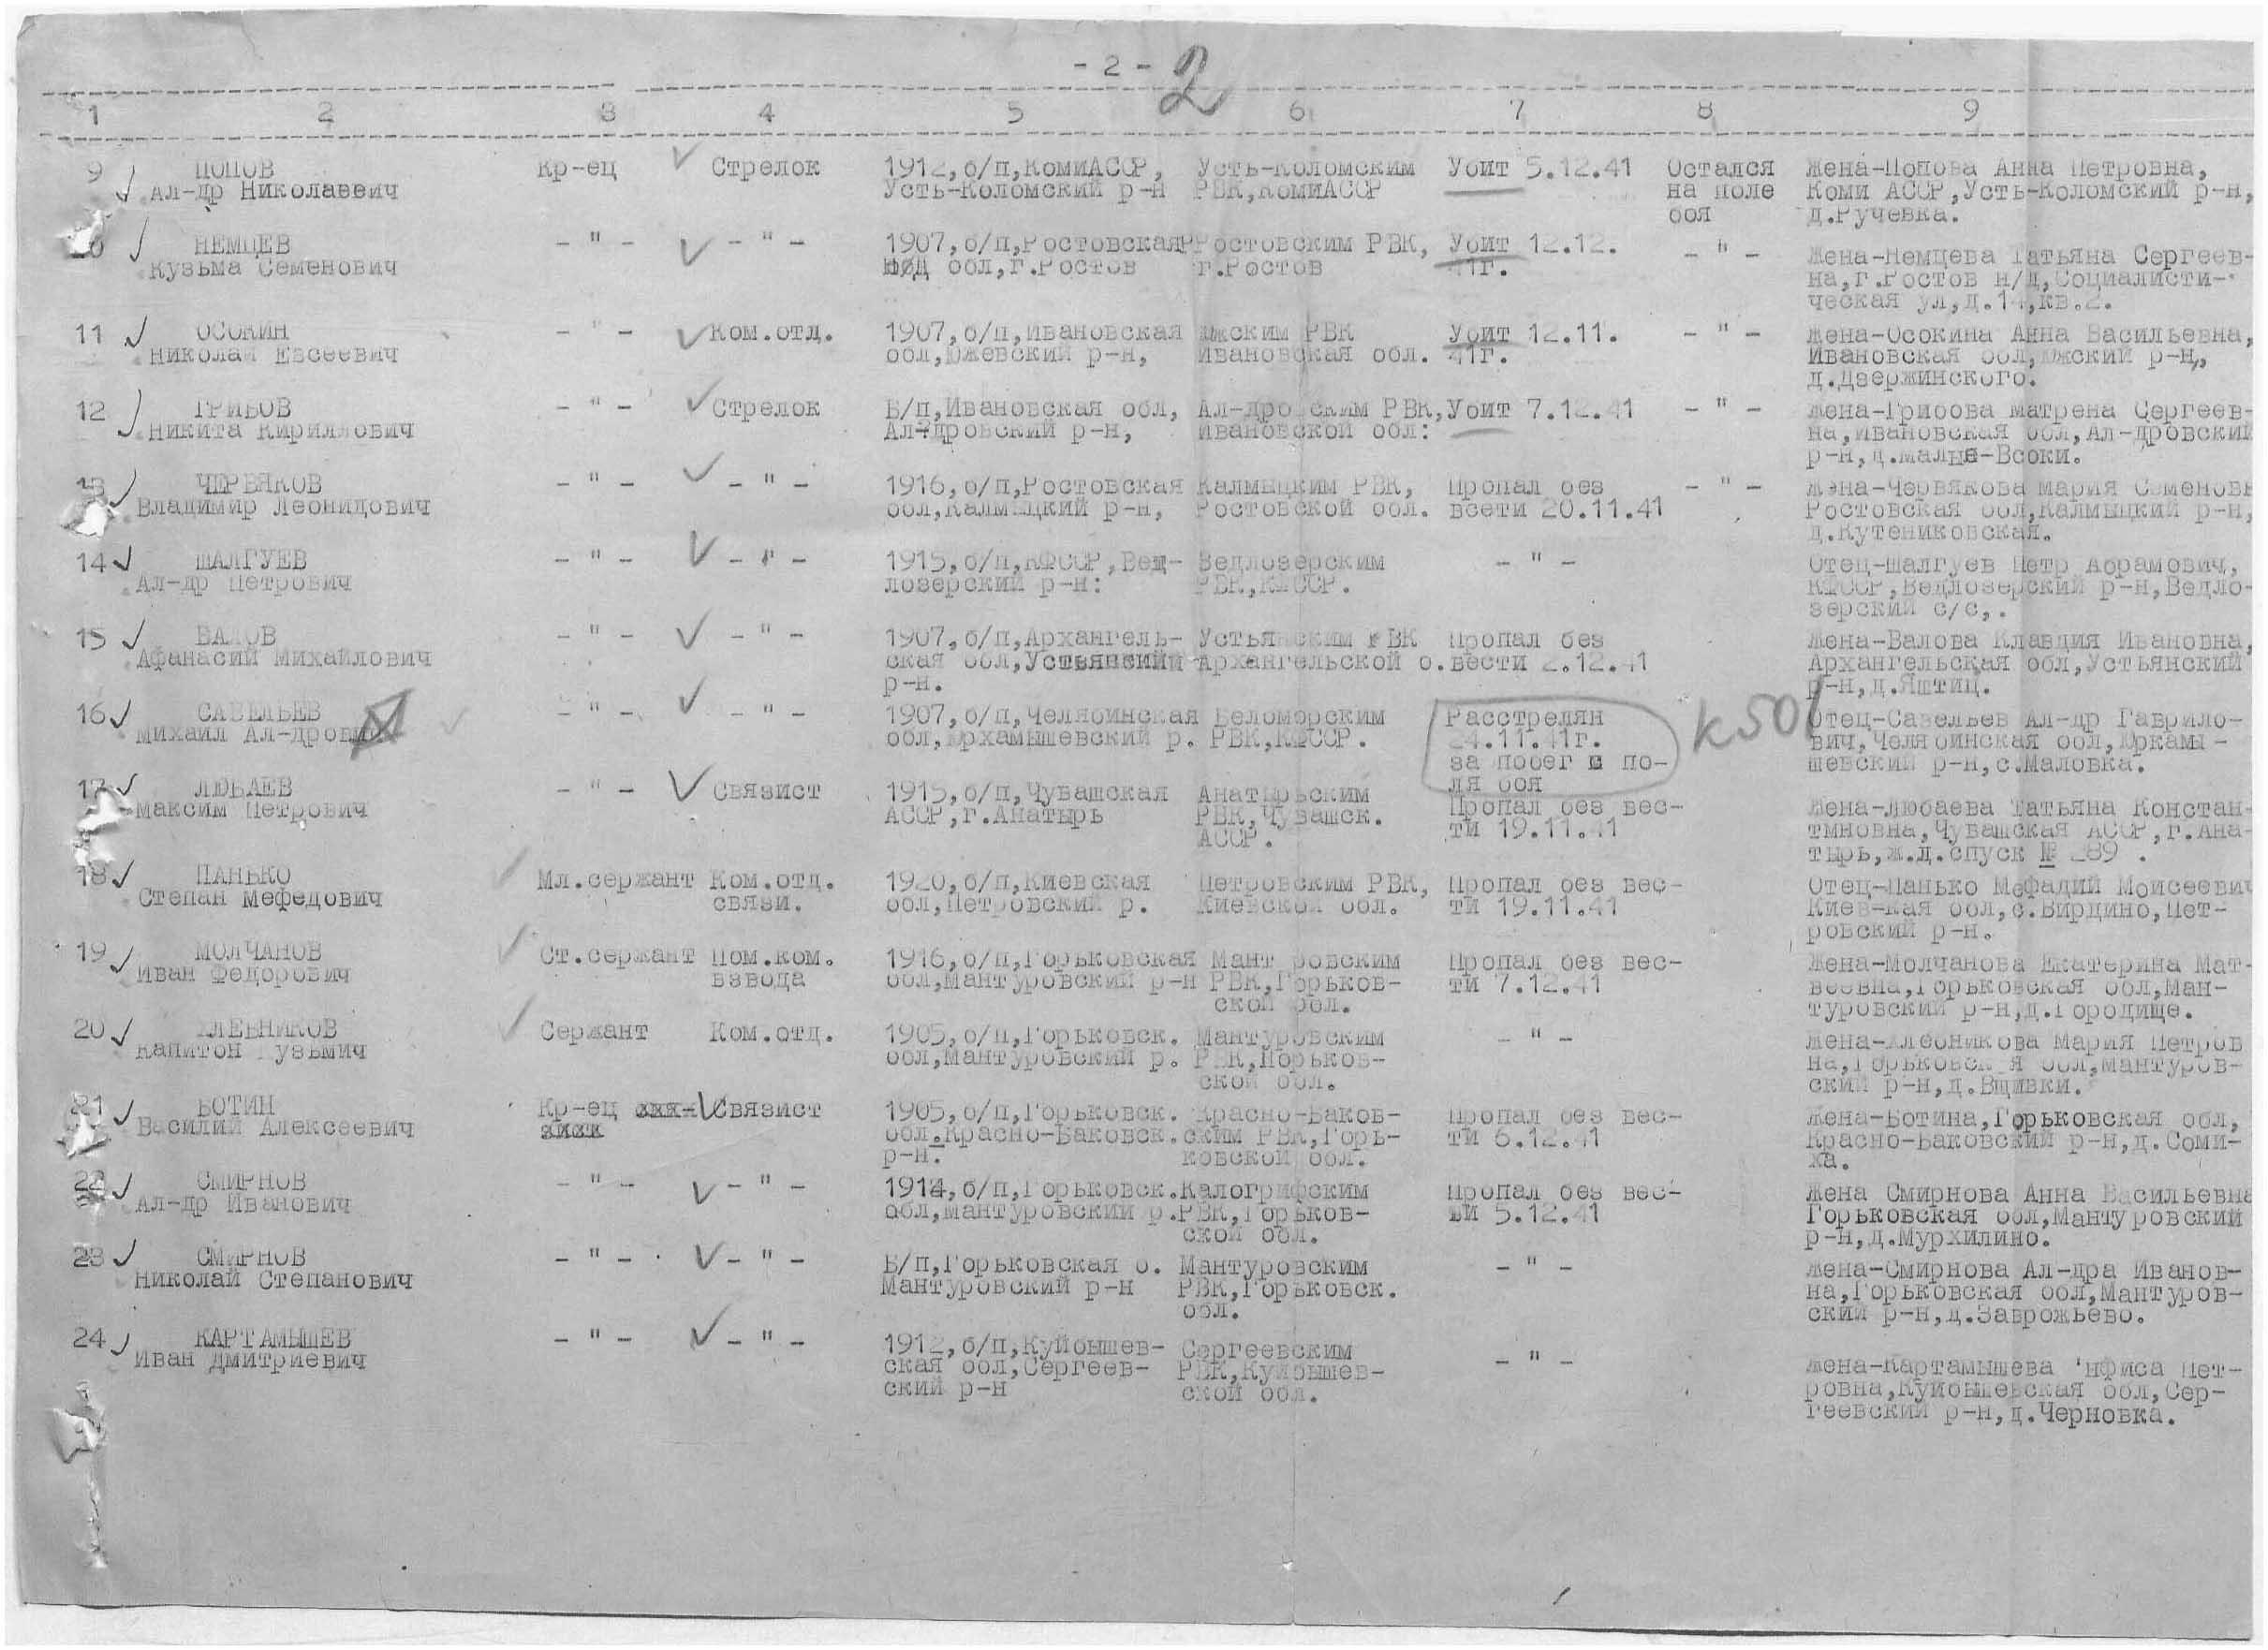 - 2 - 2
1 2 3 4 5 6 7 8 9
9 ПОПОВ Кр-ец Стрелок 1912, б/п, КомиАССР, Усть-Коломским Убит 5.12.41 Остался Жена-Попова Анна Петровна,
Ал-др Николаевич Усть-Коломский р-н РВК, КомиАССР на поле Коми АССР, Усть-Коломский р-н,
боя д.Ручевка.
НЕМЦЕВ - " - - " - 1907, б/п, Ростовская Ростовским РВК, Убит 12.12. - " - Жена-Немцева Татьяна Сергеев-
Кузьма Семенович обл, г.Ростов г.Ростов 41г. на, г.Ростов н/Д, Социалисти-
ческая ул, д. кв.2.
11 ОСОКИН - " - Ком.отд. 1907, б/п, Ивановская Южским РВК Убит 12.11. - " - Жена-Осокина Анна Васильевна,
Николай Евсеевич обл, Южевский р-н, Ивановская обл. 41г. Ивановская обл, Южский р-н,,
д.Дзержинского.
12 ГРИБОВ - " - Стрелок Б/п, Ивановская обл, Ал-дровским РВК, Убит 7.12.41 - " - Жена-Грибова Матрена Сергеев-
Никита Кириллович Ал-дровский р-н, Ивановской обл: на, Ивановская обл, Ал-дровский
р-н, д.Малые-Всоки.
13 ЧЕРВЯКОВ - " - - " - 1916, б/п, Ростовская Калмыцким РВК, Пропал без - " - Жена-Червякова Мария Семеновн
Владимир Леонидович обл, Калмыцкий р-н, Ростовской обл. всети 20.11.41 Ростовская обл, Калмыцкий р-н,
д.Кутениковская.
14 ШАЛГУЕВ - " - - " - 1915, б/п, КФССР, Вед- Ведлозерским - " - Отец-Шалгуев Петр Абрамович,
Ал-др Петрович лозерский р-н: РВК, КФССР. КФССР, Ведлозерский р-н, Ведло-
зерский с/с,.
15 ВАЛОВ - " - - " - 1907, б/п, Архангель- Устьянским РВК Пропал без Жена-Валова Клавдия Ивановна,
Афанасий Михайлович ская обл, Устьянский Архангельской о. вести 2.12.41 Архангельская обл, Устьянский
р-н. р-н, д.Яштиц.
16 САВЕЛЬЕВ - " - - " - 1907, б/п, Челябинская Беломорским Расстрелян К501 Отец-Савельев Ал-др Гаврило-
Михаил Ал-дрович обл, Юрхамышевский р. РВК, КФССР. 24.11.41г. вич, Челябинская обл, Юркамы-
за побег с по- шевский р-н, с.Маловка.
ля боя
17 ЛЮБАЕВ - " - Связист 1915, б/п, Чувашская Анатырьским Пропал без вес- Жена-Любаева Татьяна Констан-
Максим Петрович АССР, г.Анатырь РВК, Чувашск. ти 19.11.41 тмновна, Чувашская АССР, г.Ана-
АССР. тырь, ж.д.спуск № 289 .
18 ПАНЬКО Мл.сержант Ком.отд. 1920, б/п, Киевская Петровским РВК, Пропал без вес- Отец-Панько Мефадий Моисеевич
Степан Мефедович связи. обл, Петровский р. Киевской обл. ти 19.11.41 Киев-кая обл, с.Вирцино, Пет-
ровский р-н.
19 МОЛЧАНОВ Ст.сержант Пом.ком. 1916, б/п, Горьковская Мант ровским Пропал без вес- Жена-Молчанова Екатерина Мат-
Иван Федорович взвода обл, Мантуровский р-н РВК, Горьков- ти 7.12.41 веевна, Горьковская обл, Ман-
ской обл. туровский р-н, д.Городище.
20 ХЛЕБНИКОВ Сержант Ком.отд. 1905, б/п, Горьковск. Мантуровским - " - Жена-Хлебникова Мария Петров
Капитон Кузьмич обл, Мантуровский р. РВК, Горьков- на, Горьковская обл, Мантуров-
ской обл. ский р-н, д.Вшивки.
21 БОТИН Кр-ец Связист 1905, б/п, Горьковск. Красно-Баков- Пропал без вес- Жена-Ботина, Горьковская обл,
Василий Алексеевич обл.Красно-Баковск. ским РВК, Горь- ти 6.12.41 Красно-Баковский р-н, д.Соми-
р-н. ковской обл. ха.
22 СМИРНОВ - " - - " - 1914, б/п, Горьковск. Калогрифским Пропал без вес- Жена Смирнова Анна Васильевна
Ал-др Иванович обл, Мантуровский р. РВК, Горьков- ти 5.12.41 Горьковская обл, Мантуровский
ской обл. р-н, д.Мурхилино.
23 СМИРНОВ - " - - " - Б/п, Горьковская о. Мантуровским - " - Жена-Смирнова Ал-дра Иванов-
Николай Степанович Мантуровский р-н РВК, Горьковск. на, Горьковская обл, Мантуров-
обл. ский р-н, д.Заврожьево.
24 КАРТАМЫШЕВ - " - - " - 1912, б/п, Куйбышев- Сергеевским - " - Жена-Картамышева 'нфиса Пет-
Иван Дмитриевич ская обл, Сергеев- РВК, Куйбышев- ровна, Куйбышевская обл, Сер-
ский р-н ской обл. геевский р-н, д.Черновка.